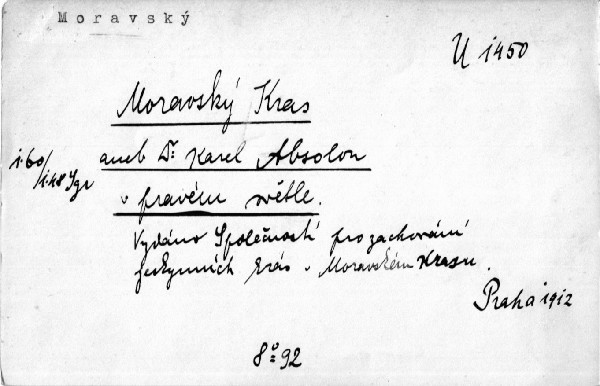 Moravský
U 1450
Moravský Kras
aneb Dr. Karel Absolon
v pravém světle.
Vydáno Společností pro zachování
jeskynních krás v Moravském Krasu.
Praha 1912
8° 92